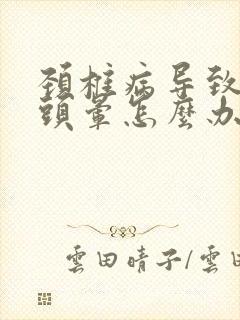 颈椎病导致
頭暈怎麼办
雲田晴子/雲田